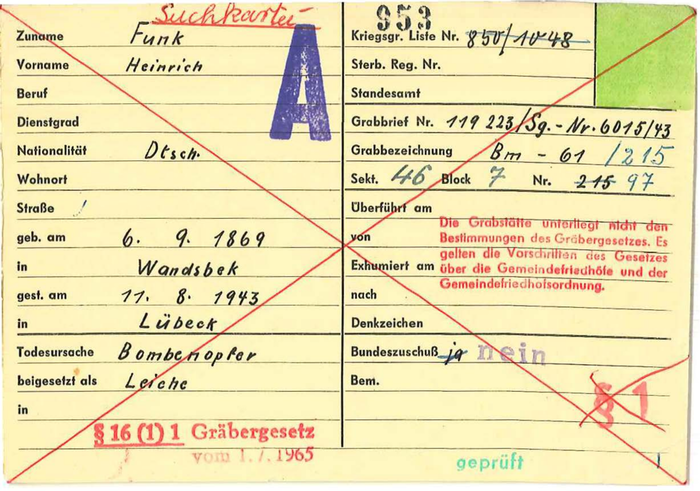 Suchkartei
Zuname Funk
Vorname Heinrich
Beruf
Dienstgrad
Nationalität Dtsch.
Wohnort
Straße
geb. am 6. 9. 1869
in Wandsbek
gest. am 11. 8. 1943
in Lübeck
Todesursache Bombenopfer
beigesetzt als Leiche
in
§ 16 (1) 1 Gräbergesetz
vom 1.7.1965
A
953
Kriegsgr. Liste Nr. 850/1048
Sterb. Reg. Nr.
Standesamt
Grabbrief Nr. 119 223/Sg.-Nr. 6015/43
Grabbezeichnung Bm - 61 /215
Sekt. 46 Block 7 Nr. 215 97
Überführt am
von
Exhumiert am
nach
Die Grabstätte unterliegt nicht den
Bestimmungen des Gräbergesetzes. Es
gelten die Vorschriften des Gesetzes
über die Gemeindefriedhöfe und der
Gemeindefriedhofsordnung.
Denkzeichen
Bundeszuschuß ja nein
Bem.
§ 1
geprüft